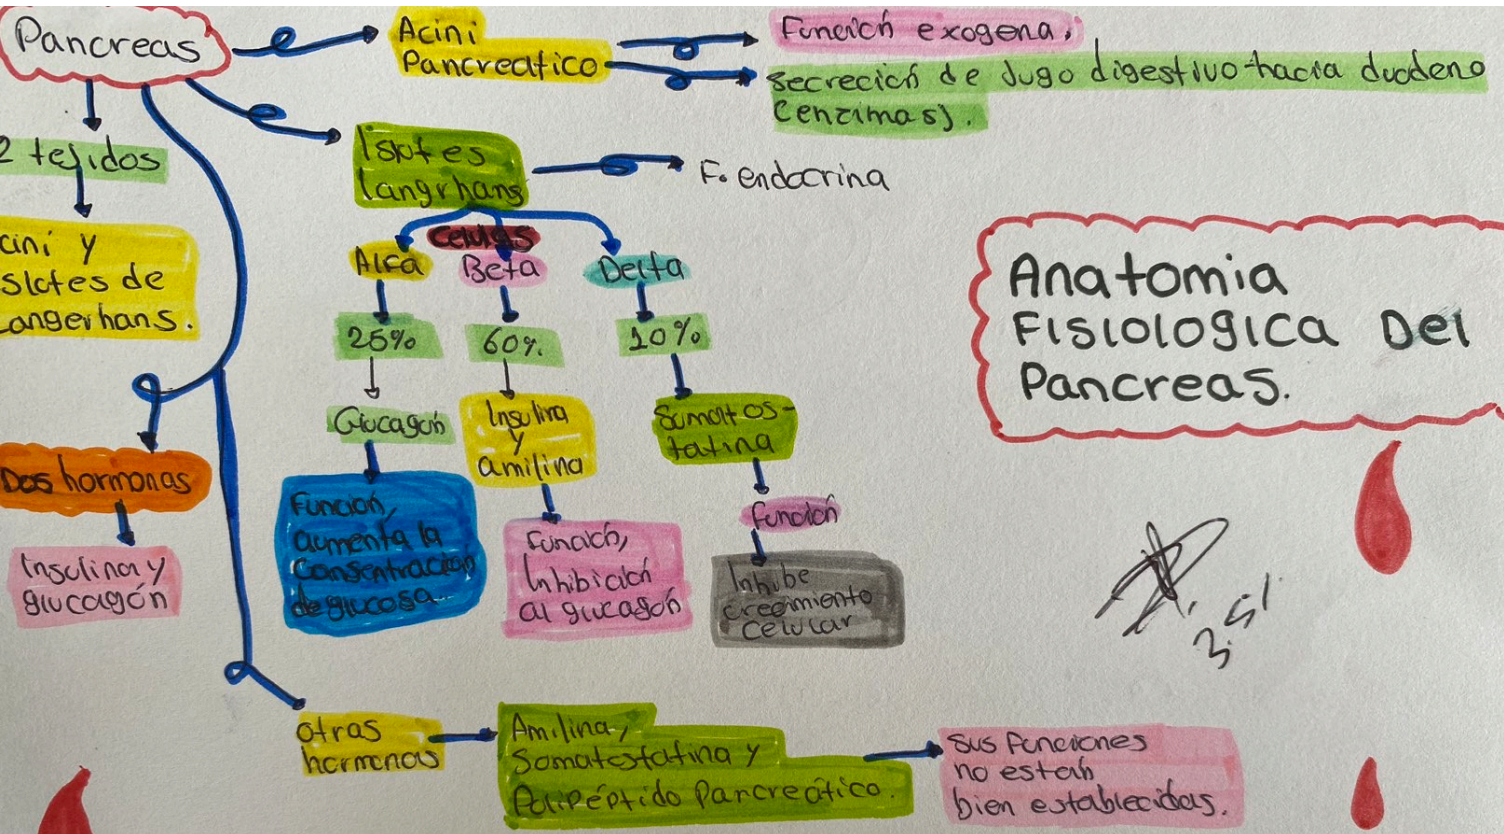 Pancreas
Acini
Pancreatico
Función exogena.
secreción de Jugo digestivo hacia duodeno
(enzimas).
2 tejidos
cini y
slotes de
angerhans.
Islotes
langrhans
F. endocrina
Celulas
Alfa
Beta
Delta
25%
60%
10%
Glucagón
Insulina
y
amilina
Somatos-
tatina
Función,
aumenta la
Consentracion
de glucosa
Función,
Inhibición
al glucagón
Función
Inhibe
crecimiento
celular
Dos hormonas
Insulina y
glucagón
otras
hormonas
Amilina,
Somatostatina y
Polipéptido Pancreático.
sus funciones
no están
bien establecidas.
Anatomia
Fisiologica Del
Pancreas.
3.5!